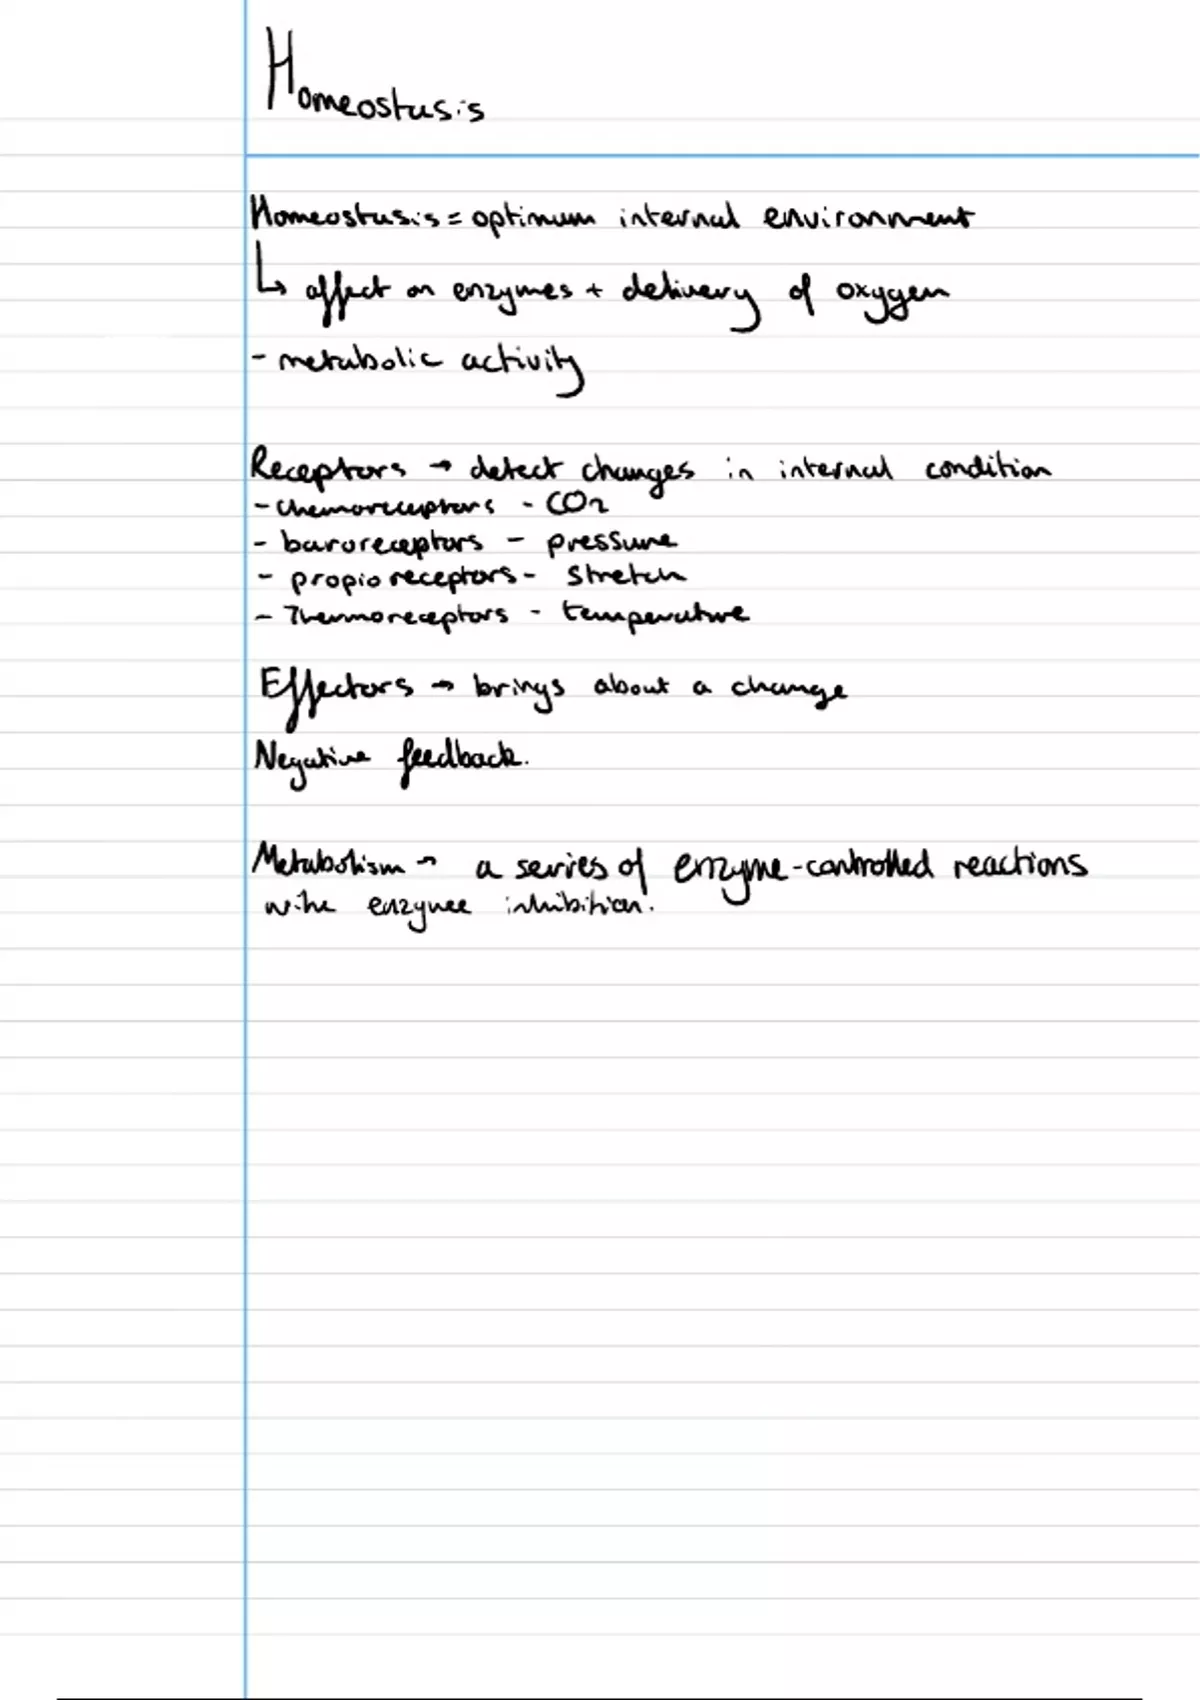 Homeostasis
Homeostasis = optimum internal environment
↳ affect on enzymes + delivery of oxygen
- metabolic activity
Receptors → detect changes in internal condition
- chemoreceptors - CO2
- baroreceptors - pressure
- propioreceptors - stretch
- Thermoreceptors - temperature
Effectors → brings about a change
Negative feedback.
Metabolism → a series of enzyme-controlled reactions
enzyme inhibition.